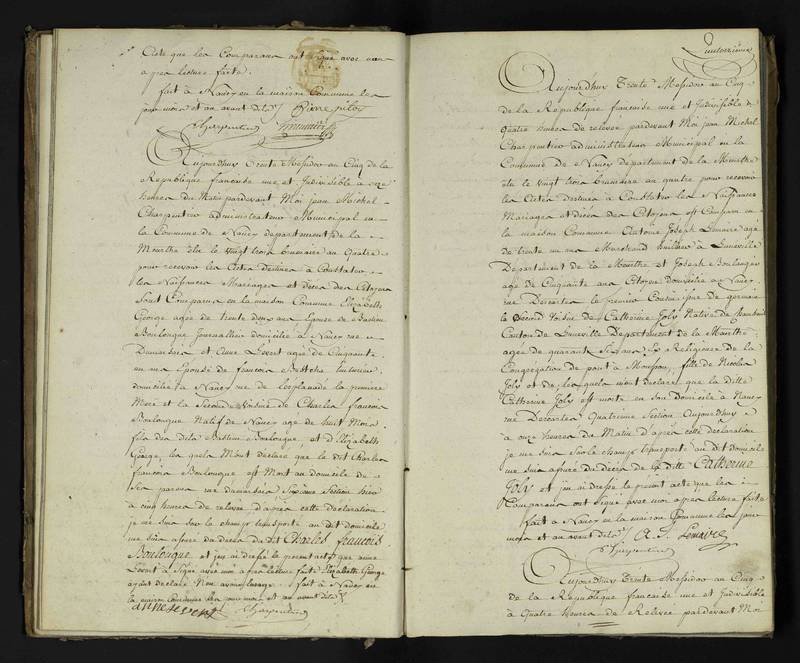 Acte que les Comparans ont signé avec
après lecture faite.
fait à Nancy en la maison Commune les
jour mois et an avant dits
Charpentier
Aujourdhuy Trente Messidor au Cinq de la
République française une et Indivisible à
heures du Matin pardevant Moi jean Michel
Charpentier administrateur Municipal en
la Commune de Nancy departement de la
Meurthe élu le vingt trois brumaire an Quatre
pour recevoir les Actes destinés à Constater
les Naissances Mariages et décès des Citoyens
Sont Comparus en la maison Commune Elizabeth
George agée de trente deux ans Epouse de Bastien
Boulouque journallier domicilié à Nancy rue
Dumarsais et Anne Level agée de Cinquante
un ans Epouse de francois
domicilié à Nancy rue de l'esplanade la première
Mere et la Seconde Voisine de Charles francois
Boulouque Natif de Nancy age de huit Mois
fils du dit Bastien Boulouque, et d'Elizabeth
George, les quels M'ont déclaré que le dit Charles
francois Boulouque est Mort au domicile de
Ses parens rue Dumarsais Section hier
à cinq heures de relevée d'après cette déclaration
je me suis sur le champ transporté au dit domicile
me suis assuré du décès du dit Charles francois
Boulouque et j'en ai dressé le présent acte que anne
Level a Signé avec moi après lecture faite Elizabeth George
ayant déclaré Non avoir l'usage fait à Nancy en
la maison Commune les jour mois et an avant dits
anne level Charpentier
Aujourdhuy Trente Messidor au Cinq
de la République française une et Indivisible à
Quatre heures de relevée pardevant Moi jean Michel
Charpentier administrateur Municipal en la
Commune de Nancy departement de la Meurthe
élu le vingt trois brumaire an quatre pour recevoir
les Actes destinés à Constater les Naissances
Mariages et décès des Citoyens est Comparu en
la maison Commune Antoine Joseph Lemaire agé
de trente un ans à Luneville
Département de la Meurthe et Joseph Boulanger
agé de Cinquante ans Citoyen domicilié à Nancy
rue Descartes le premier Cousin issu de germain
le Second Voisin de Catherine Joly Native de
Canton de Luneville Departement de la Meurthe
agée de quarante Six ans Ex Religieuse de la
Congrégation de pont à Mousson, fille de Nicolas
Joly et de les quels m'ont déclaré que la ditte
Catherine Joly est morte en son domicile à Nancy
rue Descartes Quatrième Section Aujourdhuy
à onze heures du Matin d'après cette déclaration
je me suis sur le champ transporté au dit domicile
me suis assuré du décès de la ditte Catherine
Joly et j'en ai dressé le présent acte que les
Comparans ont signé avec moi après lecture faite
fait à Nancy en la maison Commune les jour
mois et an avant dits A. J. Lemaire
Charpentier
Aujourdhuy Trente Messidor au Cinq
de la République française une et Indivisible
à Quatre heures de Relevée pardevant Moi